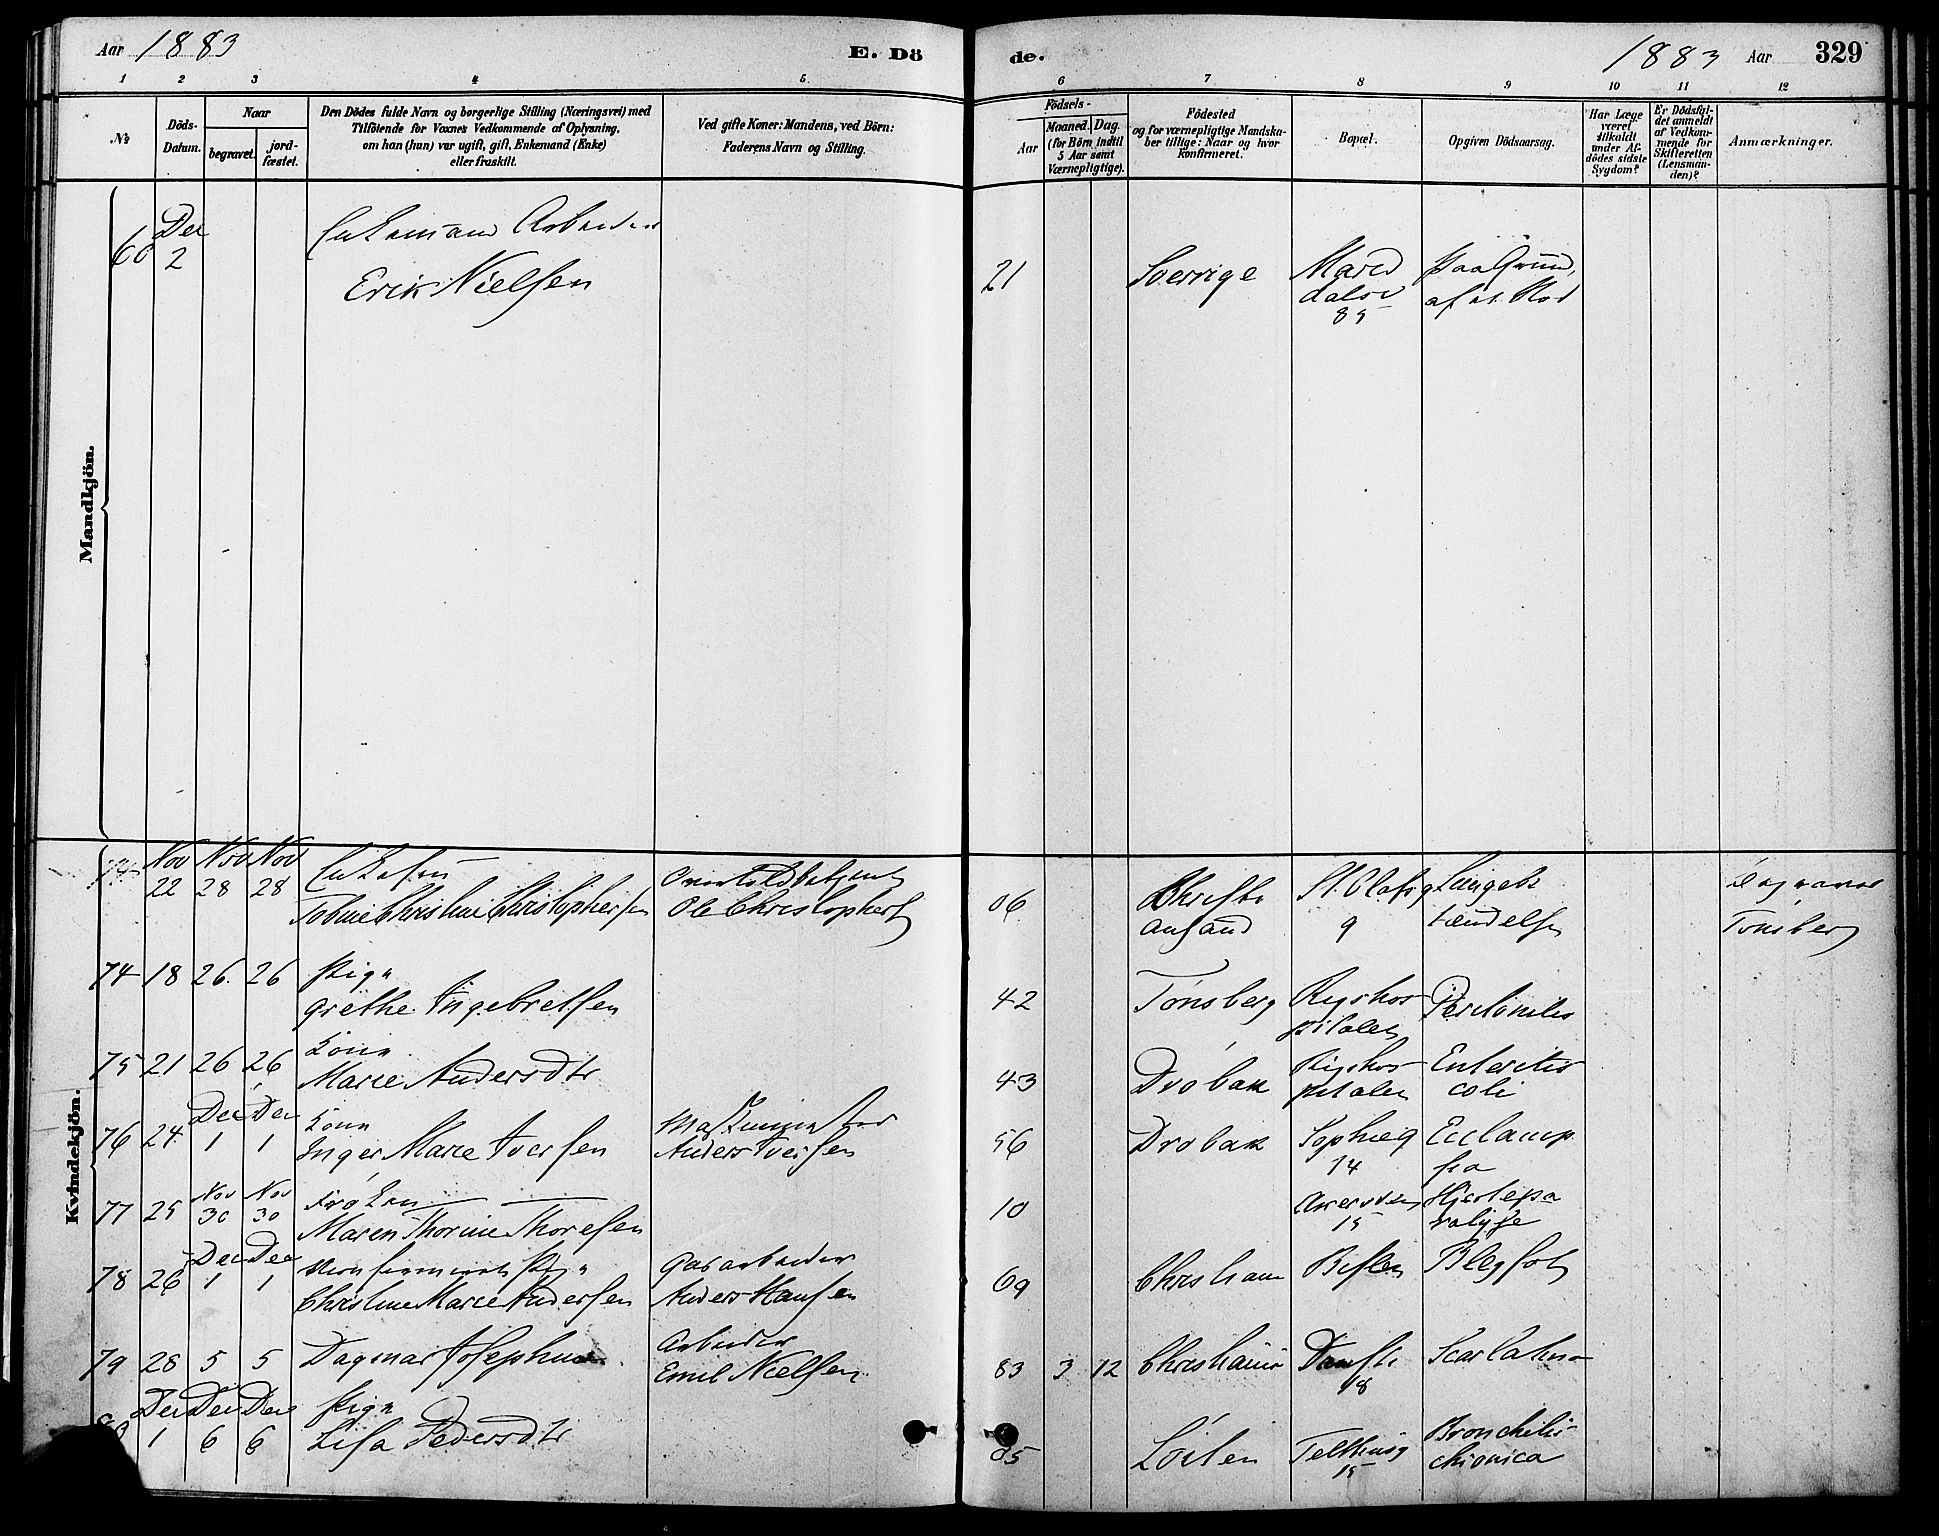 Aar 1883
E. Dö
de.
1883 Aar
329
1 2 3 4 5 6 7 8 9 10 11 12
№
Döds-
Datum.
Naar
begravet.
jord-
fæstet.
Den Dödes fulde Navn og borgerlige Stilling (Næringsvei) med
Tilföiende for Voxnes Vedkommende af Oplysning,
om han (hun) var ugift, gift, Enkemand (Enke)
eller fraskilt.
Ved gifte Koner: Mandens, ved Börn:
Faderens Navn og Stilling.
Födsels-
Aar
Maaned. Dag.
(for Börn indtil
5 Aar samt
Værnepligtige).
Födested
og for værnepligtige Mandska-
ber tillige: Naar og hvor
konfirmeret.
Bopæl.
Opgiven Dödsaarsag.
Har Læge
været
tilkaldt
under Af-
dödes sidste
Sygdom?
Er Dödsfal-
det anmeldt
af Vedkom-
mende for
Skifteretten
(Lensman-
den)?
Anmærkninger.
Mandkjön.
60
Dec
2
Enkemand Arbeider
Erik Nielsen
21
Sverrige
Marid
dalsv
85
paa Grund
af et Stød
Kvindekjön.
Nov Nov Nov
22 28 28
Tobine Christine Christophersen
Ole Christophers
06
Christi
ansand
St. Olafsg
9
Lungebe
tændelse
Tönsberg
74 18 26. 26
Pige
Grethe Ingebretsen
42
Tönsberg
Rigshos
pitalet
Peritonitis
75 21 26 26
Kone
Marie Andersdtr
43
Dröbak
Rigshos
pitalet
Enteritis
coli
76 24
Dec Dec
1 1
Kone
Inger Marie Iversen
Anders Iversen
56
Dröbak
Sophieg
14
Eclamp
sia
77 25
Nov Nov
30 30
Frøken
Maren Thorine Thoresen
10
Akersveien
15
Hjertepa
ralyse
78 26
Dec Dec
1 1
Christine Marie Andersen
Gasarbeider
Anders Hansen
69
Christiania
Bislet
Blegsot
79 28 5 5
Dagmar Josephine
Arbeider
Emil Nielsen
83 3 12
Christiania
18
Scarlatina
Dec Dec Dec
1 6 6
Pige
Lisa Pedersdtr
05
Löiten
Telthusg
15
Bronchitis
chronica